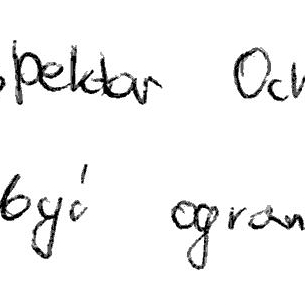 spektor Och
być ogran